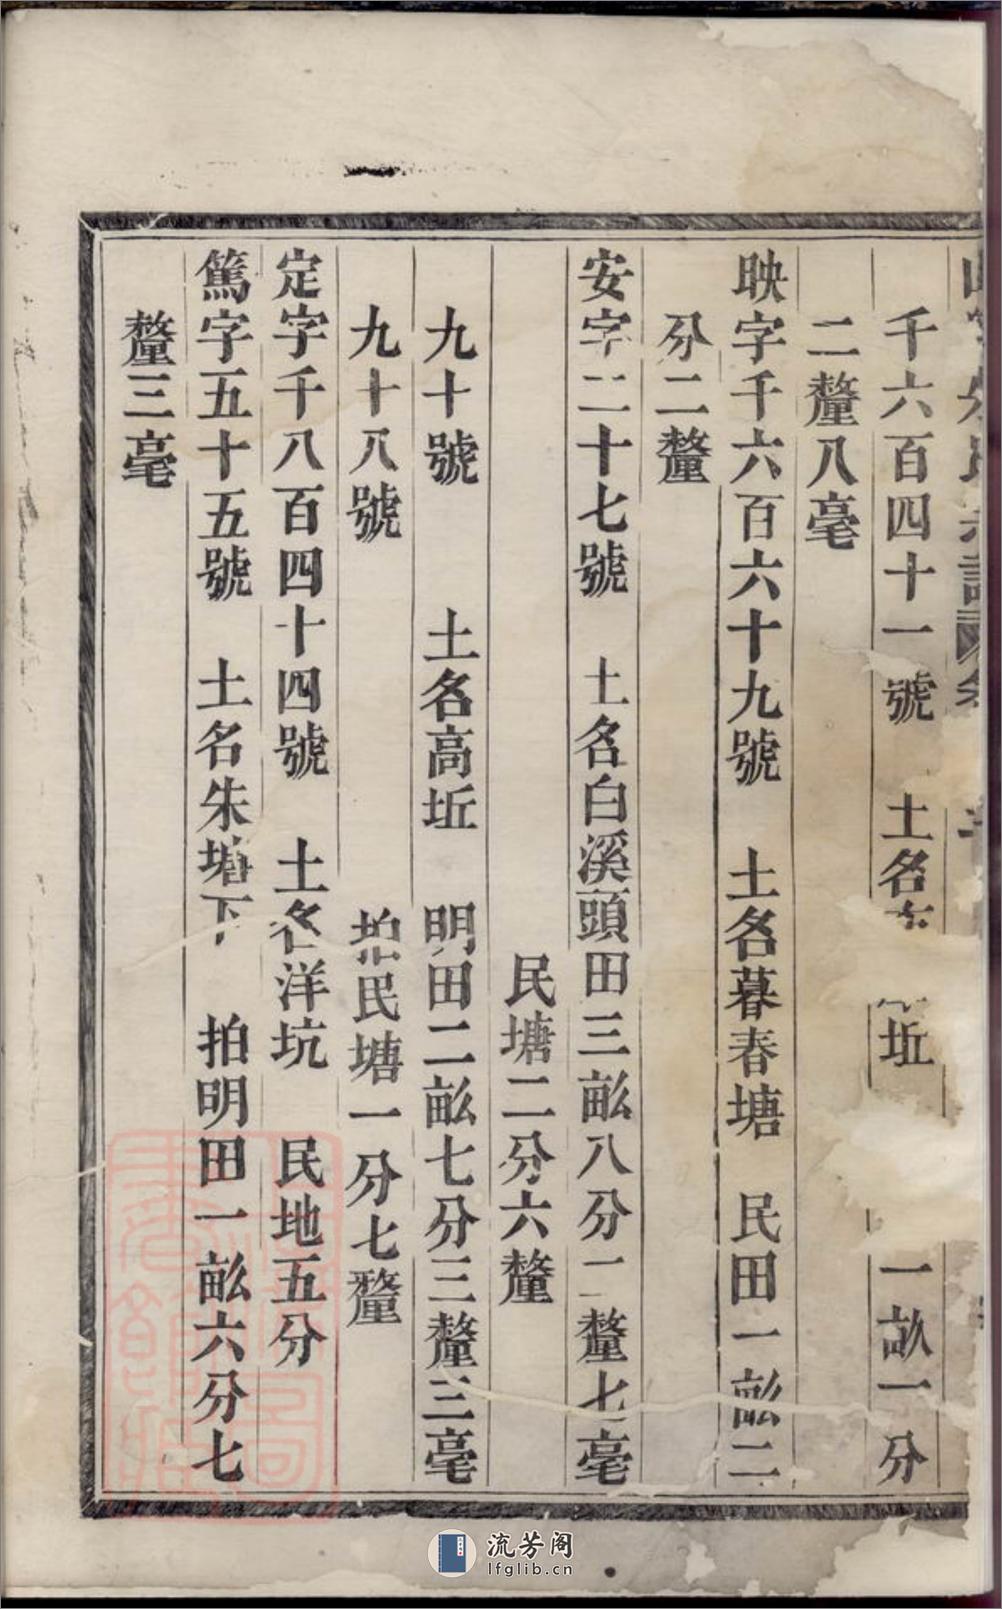 千六百四十一號 土名 坵 一畝一分
二釐八毫
映字千六百六十九號 土名暮春塘 民田一畝二
分二釐
安字二十七號 土名白溪頭田三畝八分一釐七毫
民塘二分六釐
九十號 土名高坵 明田二畝七分三釐三毫
九十八號 拍民塘一分七釐
定字千八百四十四號 土名洋坑 民地五分
篤字五十五號 土名朱塘下 拍明田一畝六分七
釐三毫
流芳阁
lfglib.cn